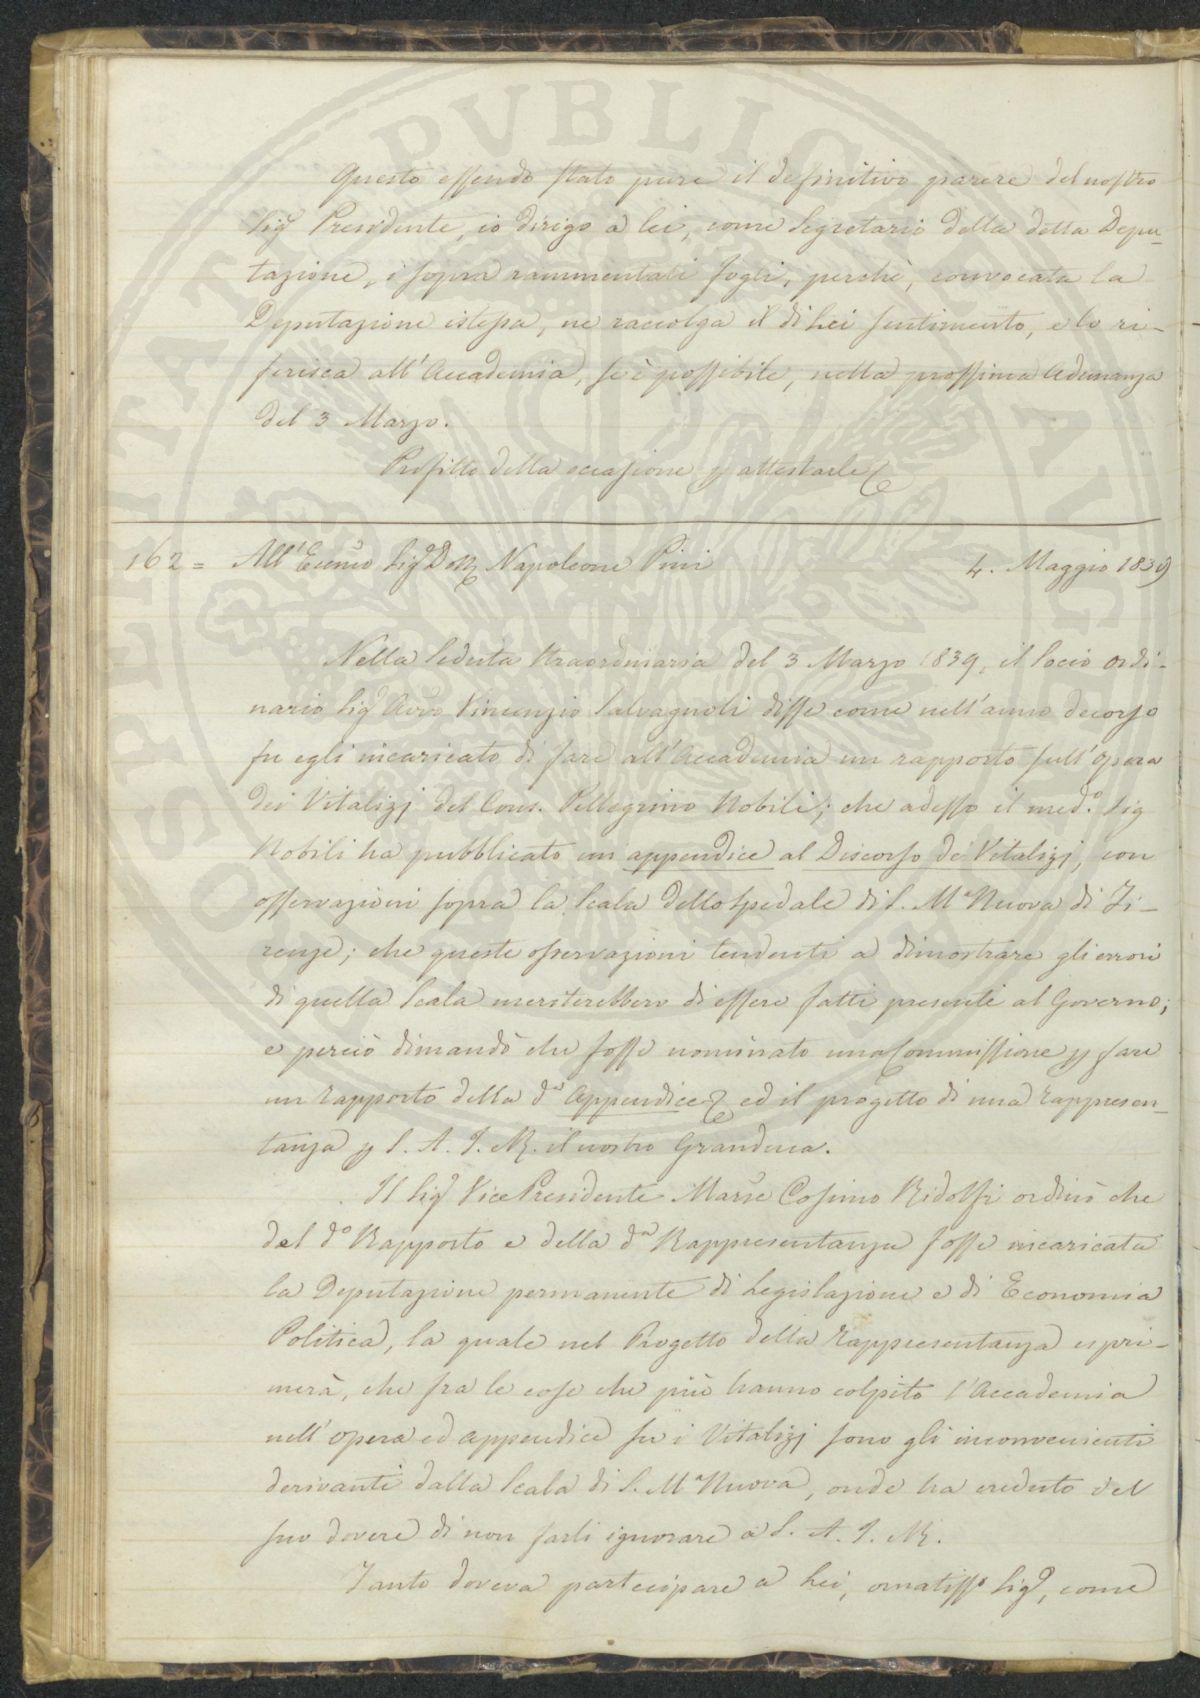 Questo essendo stato pure il definitivo parere del nostro
Sig.r Presidente, io dirigo a lei, come Segretario della detta Depu-
tazione, i sopra rammentati fogli, perchè, convocata la
Deputazione istessa, ne raccolga il di Lei sentimento, e lo ri-
ferisca all'Accademia, se è possibile, nella prossima Adunanza
del 3 Marzo.
Profitto della occasione p attestarle &
162 = All'Ecc.mo Sig.r Dott. Napoleone Pini 4. Maggio 1839
Nella Seduta straordinaria del 3 Marzo 1839, il Socio ordi-
nario Sig.r Avv.o Vincenzio Salvagnoli disse come nell'anno decorso
fu egli incaricato di fare all'Accademia un rapporto sull'Opera
dei Vitalizj del Cons. Pellegrino Nobili; che adesso il med.o Sig
Nobili ha pubblicato un appendice al Discorso dei Vitalizj, con
osservazioni sopra la Scala dello Spedale di S. M.a Nuova di Fi-
renze; che queste osservazioni tendenti a dimostrare gli errori
di quella Scala meriterebbero di essere fatti presenti al Governo;
e perciò dimandò che fosse nominato una Commissione p fare
un rapporto della d.a Appendice & ed il progetto di una Rappresen-
tanza p S. A. I. R. il nostro Granduca.
Il Sig.r Vice Presidente Marc.se Cosimo Ridolfi ordinò che
del d.o Rapporto e della d.a Rappresentanza fosse incaricata
la Deputazione permanente di Legislazione e di Economia
Politica, la quale nel Progetto della Rappresentanza espri-
merà, che fra le cose che più hanno colpito l'Accademia
nell'opera ed appendice su i Vitalizj sono gli inconvenienti
derivanti dalla Scala di S. M.a Nuova, onde ha creduto del
suo dovere di non farli ignorare a S. A. I. R.
Tanto doveva partecipare a Lei, ornatiss.o Sig.r, come